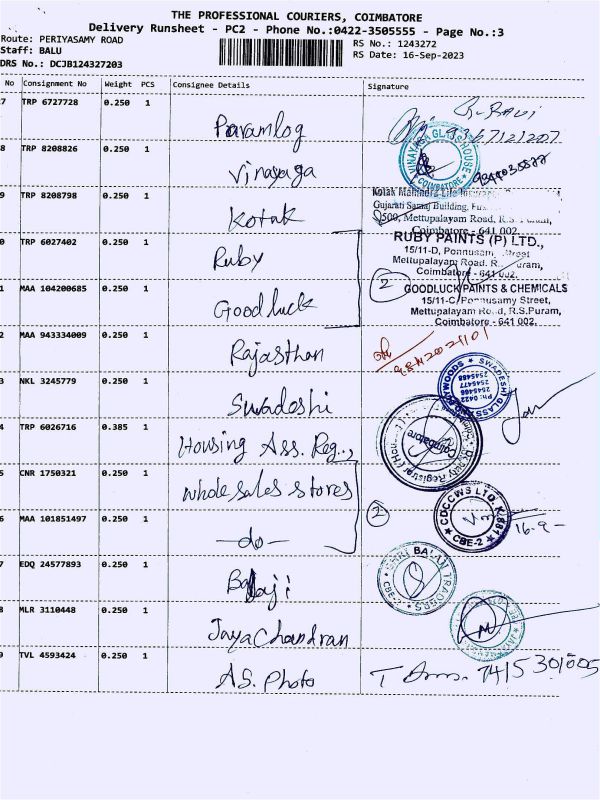 THE PROFESSIONAL COURIERS, COIMBATORE
Delivery Runsheet - PC2 - Phone No.:0422-3505555 - Page No.:3
Route: PERIYASAMY ROAD
Staff: BALU
DRS No.: DCJB124327203
RS No.: 1243272
RS Date: 16-Sep-2023
No Consignment No Weight PCS Consignee Details Signature
7 TRP 6727728 0.250 1 Paramlog
9367121207
8 TRP 8208826 0.250 1 Vinayaga
VINAYAGA GLASS HOUSE
COIMBATORE
9 TRP 8208798 0.250 1 Kotak
Kotak Mahindra Life
Gujarati Samaj Building,
Mettupalayam Road, R.S. Puram,
Coimbatore - 641 002.
0 TRP 6027402 0.250 1 Ruby
RUBY PAINTS (P) LTD.,
15/11-D, Ponnusamy Street
Mettupalayam Road. R.S.Puram,
Coimbatore - 641 002.
1 MAA 104200685 0.250 1 Goodluck
2
GOODLUCK PAINTS & CHEMICALS
15/11-C, Ponnusamy Street,
Mettupalayam Road, R.S.Puram,
Coimbatore - 641 002.
2 MAA 943334009 0.250 1 Rajasthan
3 NKL 3245779 0.250 1 Swadeshi
SWADESHI GLASS PLYWOODS
Ph: 0422
2545477
2545488
4 TRP 6026716 0.385 1 Housing Ass. Reg.,
Deputy Registrar
Coimbatore
5 CNR 1750321 0.250 1 Whole sales stores
CDCCWS LTD. K.881
CBE-2
6 MAA 101851497 0.250 1 -do-
2
16-9-
7 EDQ 24577893 0.250 1 Balaji
SHRI BALAJI TRADERS
CBE-2
8 MLR 3110448 0.250 1 Jaya Chandran
9 TVL 4593424 0.250 1 A.S. Photo
7415301005